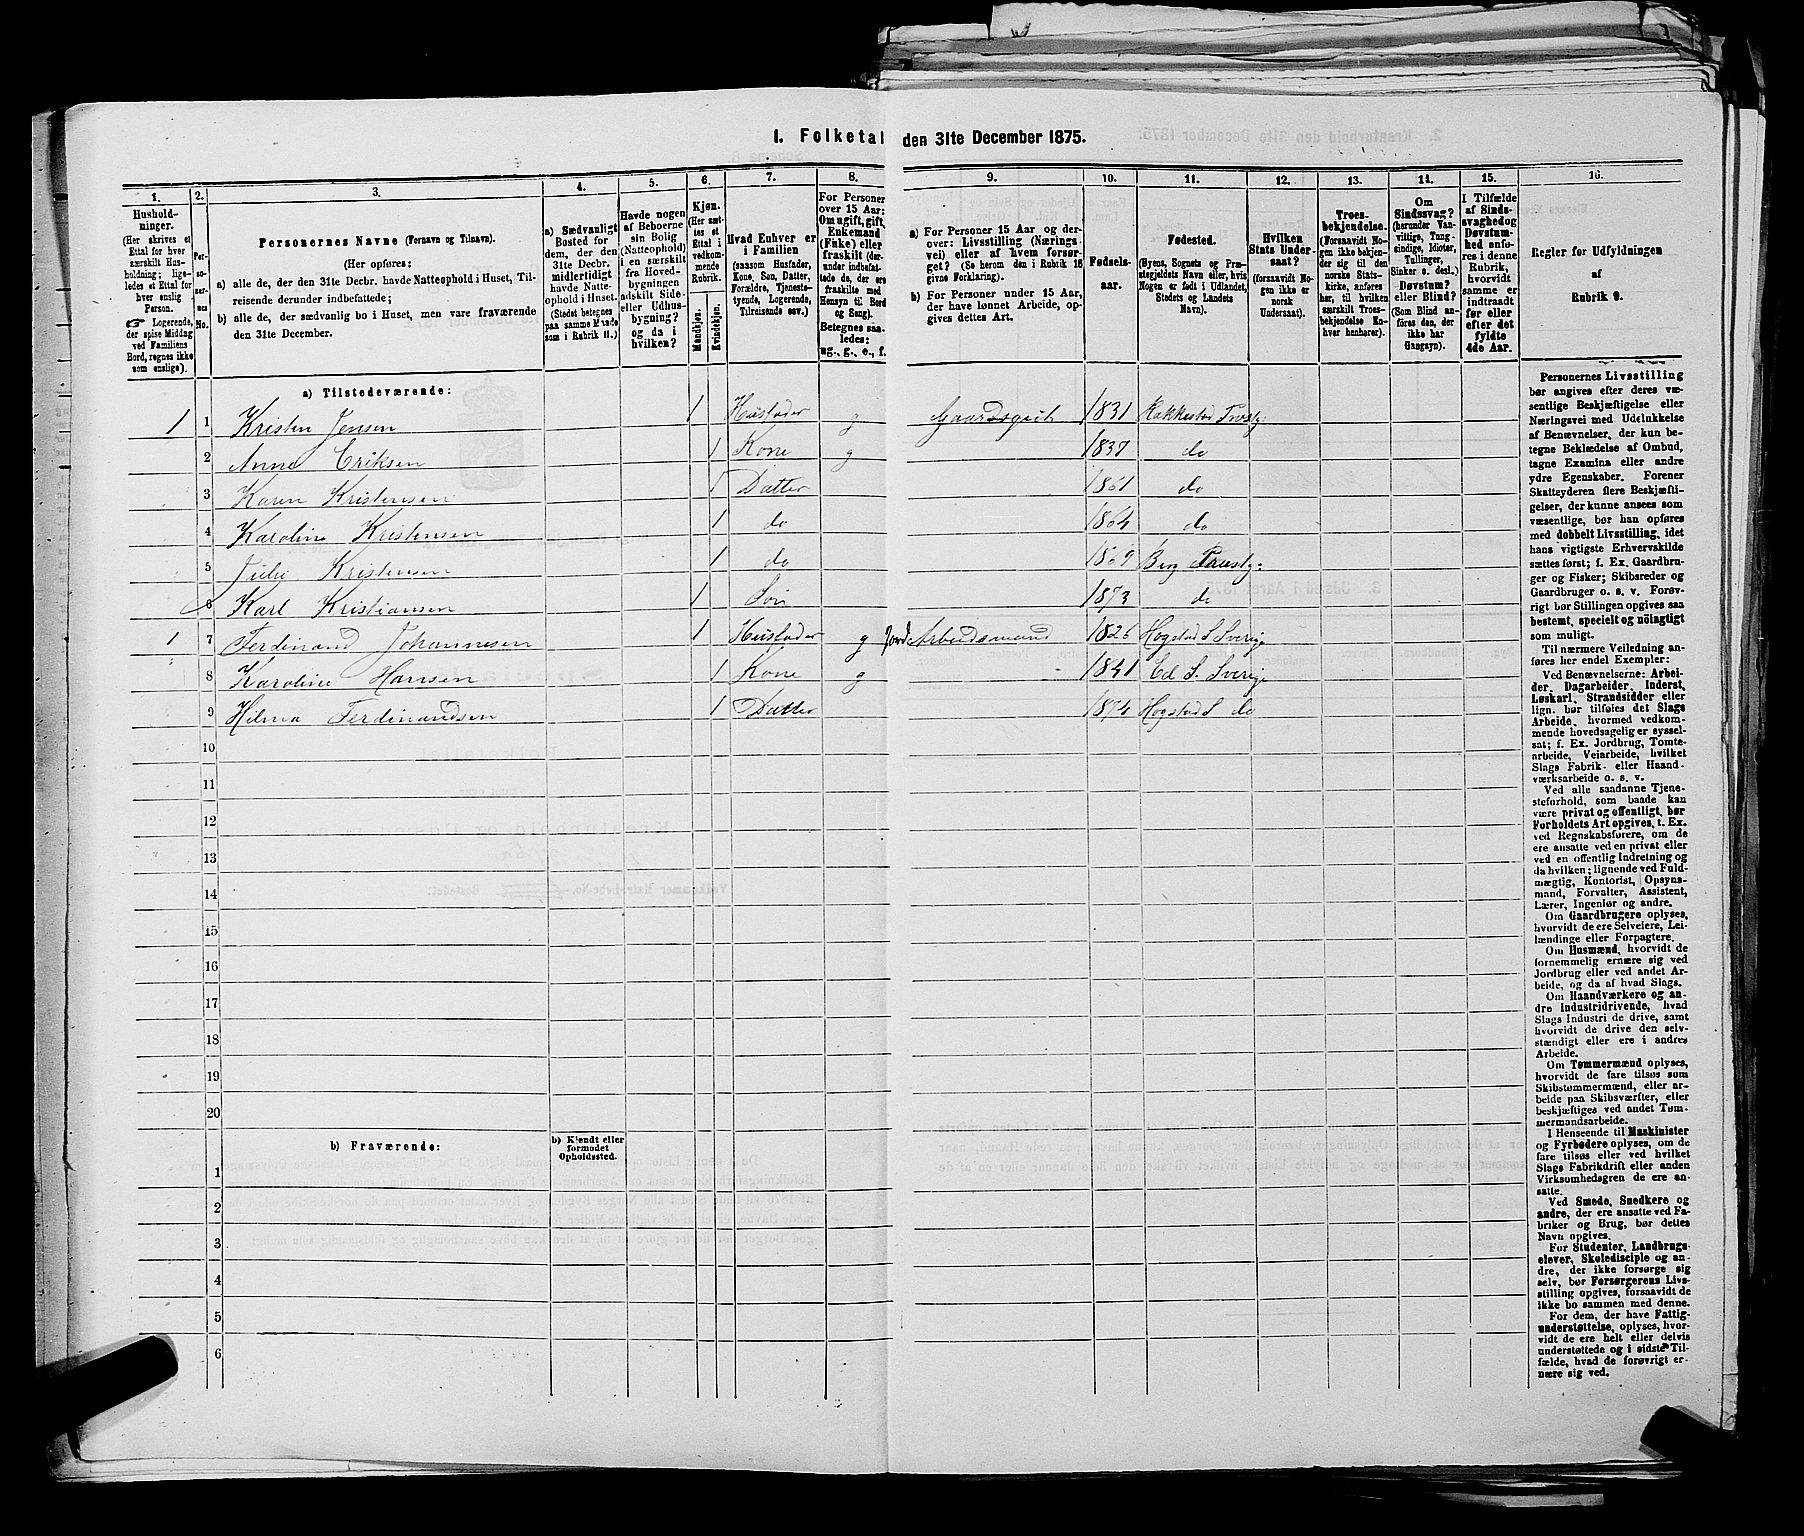 1. Folketal den 31te December 1875.
1. 2. 3. 4. 5. 6. 7. 8. 9. 10. 11. 12. 13. 14. 15. 16.
Hushold-
ninger.
(Her skrives et
Ettal for hver
særskilt Hus-
holdning; lige-
ledes et Ettal for
hver enslig
Person.
☞ Logerende,
der spise Middag
ved Familiens
Bord, regnes ikke
som enslige).
Per-
so-
ner-
nes
No.
Personernes Navne (Fornavn og Tilnavn).
(Her opføres:
a) alle de, der den 31te Decbr. havde Natteophold i Huset, Til-
reisende derunder indbefattede;
b) alle de, der sædvanlig bo i Huset, men vare fraværende
den 31te December.
a) Sædvanligt
Bosted for
dem, der den
31te Decbr.
midlertidigt
havde Natte-
ophold i Huset.
(Stedet betegnes
paa samme Maade
som i Rubrik 11.)
Havde nogen
af Beboerne
sin Bolig
(Natteophold)
i en særskilt
fra Hoved-
bygningen
adskilt Side-
eller Udhus-
bygning?
og da i
hvilken?
Kjøn.
(Her sæt-
tes et
Ettal i
vedkom-
mende
Rubrik.
Mandkjøn.
Kvindekjøn.
Hvad Enhver er
i Familien
(saasom Husfader,
Kone, Søn, Datter,
Forældre, Tjeneste-
tyende, Logerende,
Tilreisende osv.)
For Personer
over 15 Aar:
Om ugift, gift,
Enkemand
(Enke) eller
fraskilt (der-
under indbefat-
tede de, der ere
fraskilte med
Hensyn til Bord
og Seng).
Betegnes saa-
ledes:
ug., g., e., f.
a) For Personer 15 Aar og der-
over: Livsstilling (Nærings-
vei) eller af hvem forsør-
get? (Se herom den i Rubrik 16
givne Forklaring).
b) For Personer under 15 Aar,
der have lønnet Arbeide, op-
gives dettes Art.
Fødsels-
aar.
Fødested.
(Byens, Sognets og Præ-
stegjeldets Navn eller, hvis
Nogen er født i Udlandet,
Stedets og Landets
Navn).
Hvilken
Stats Under-
saat?
(forsaavidt No-
gen ikke er
norsk
Undersaat).
Troes-
bekjendelse.
(Forsaavidt No-
gen ikke bekjen-
der sig til den
norske Stats-
kirke, anføres
her, til hvilken
særskilt Troes-
bekjendelse En-
hver henhører).
Om
Sindssvag?
(herunder Van-
vittige, Tung-
sindige, Idioter,
Tullinger,
Sinker o. desl.)
Døvstum?
eller Blind?
(Som Blind an-
føres den, der
ikke har
Gangsyn).
I Tilfælde
af Sinds-
svaghed og
Døvstum-
hed anfø-
res i denne
Rubrik,
hvorvidt
samme er
indtraadt
før eller
efter det
fyldte
4de Aar.
Regler for Udfyldningen
af
Rubrik 9.
a) Tilstedeværende:
1 1 Kristen Jensen 1 Husfader g Gaardsgut 1831 Rakkestad
2 Anne Eriksen 1 Kone g 1837 do
3 Karen Kristensen 1 Datter 1861 do
4 Karoline Kristensen 1 do 1864 do
5 Julie Kristensen 1 do 1869 Berg
6 Karl Kristiansen 1 Søn 1873 do
1 7 Ferdinand Johannesen 1 Husfader g Jord Arbeidsmand 1826 Hogstad S. Sverige
8 Karoline Hansen 1 Kone g 1841 Ed S. Sverige
9 Hilma Ferdinandsen 1 Datter 1874 Hogstad S. do
10
11
12
13
14
15
16
17
18
19
20
b) Fraværende:
b) Kjendt eller
formodet
Opholdssted.
1
2
3
4
5
6
Personernes Livsstilling
bør angives efter deres væ-
sentlige Beskjæftigelse eller
Næringsvei med Udelukkelse
af Benævnelser, der kun be-
tegne Beklædelse af Ombud,
tagne Examina eller andre
ydre Egenskaber. Forener
Skatteyderen flere Beskjæfti-
gelser, der kunne ansees som
væsentlige, bør han opføres
med dobbelt Livsstilling, idet
hans vigtigste Erhvervskilde
sættes først; f. Ex. Gaardbru-
ger og Fisker; Skibsreder og
Gaardbruger o. s. v. Forøv-
rigt bør Stillingen opgives saa
bestemt, specielt og nøiagtigt
som muligt.
Til nærmere Veiledning an-
føres her endel Exempler:
Ved Benævnelserne: Arbei-
der, Dagarbeider, Inderst,
Løskarl, Strandsidder eller
lign. bør tilføies det Slags
Arbeide, hvormed vedkom-
mende hovedsagelig er syssel-
sat; f. Ex. Jordbrug, Tomte-
arbeide, Veiarbeide, hvilket
Slags Fabrik- eller Haand-
værksarbeide o. s. v.
Ved alle saadanne Tjene-
steforhold, som baade kan
være privat og offentligt, bør
Forholdets Art opgives, t. Ex.
ved Regnskabsførere, om de
ere ansatte ved en privat eller
ved en offentlig Indretning og
da hvilken; lignende ved Fuld-
mægtig, Kontorist, Opsyns-
mand, Forvalter, Assistent,
Lærer, Ingeniør og andre.
Om Gaardbrugere oplyses,
hvorvidt de ere Selveiere, Lei-
lændinge eller Forpagtere.
Om Husmænd, hvorvidt de
fornemmelig ernære sig ved
Jordbrug eller ved andet Ar-
beide, og da af hvad Slags.
Om Haandværkere og an-
dre Industridrivende, hvad
Slags Industri de drive, samt
hvorvidt de drive den selv-
stændigt eller ere i andres
Arbeide.
Om Tømmermænd oplyses,
hvorvidt de fare tilsøs som
Skibstømmermænd, eller ar-
beide paa Skibsværfter, eller
beskjæftiges ved andet Tøm-
mermandsarbeide.
I Henseende til Maskinister
og Fyrbødere oplyses, om de
fare tilsøs eller ved hvilket
Slags Fabrikdrift eller anden
Virksomhedsgren de ere an-
satte.
Ved Smede, Snedkere og
andre, der ere ansatte ved Fa-
briker og Brug, bør dettes
Navn opgives.
For Studenter, Landbrugs-
elever, Skoledisciple og an-
dre, der ikke forsørge sig
selv, bør Forsørgerens Livs-
stilling opgives, forsaavidt de
ikke bo sammen med denne.
For dem, der have Fattig-
understøttelse, oplyses, hvor-
vidt de ere helt eller delvis
understøttede og i sidste Til-
fælde, hvad de forøvrigt er-
nære sig ved.